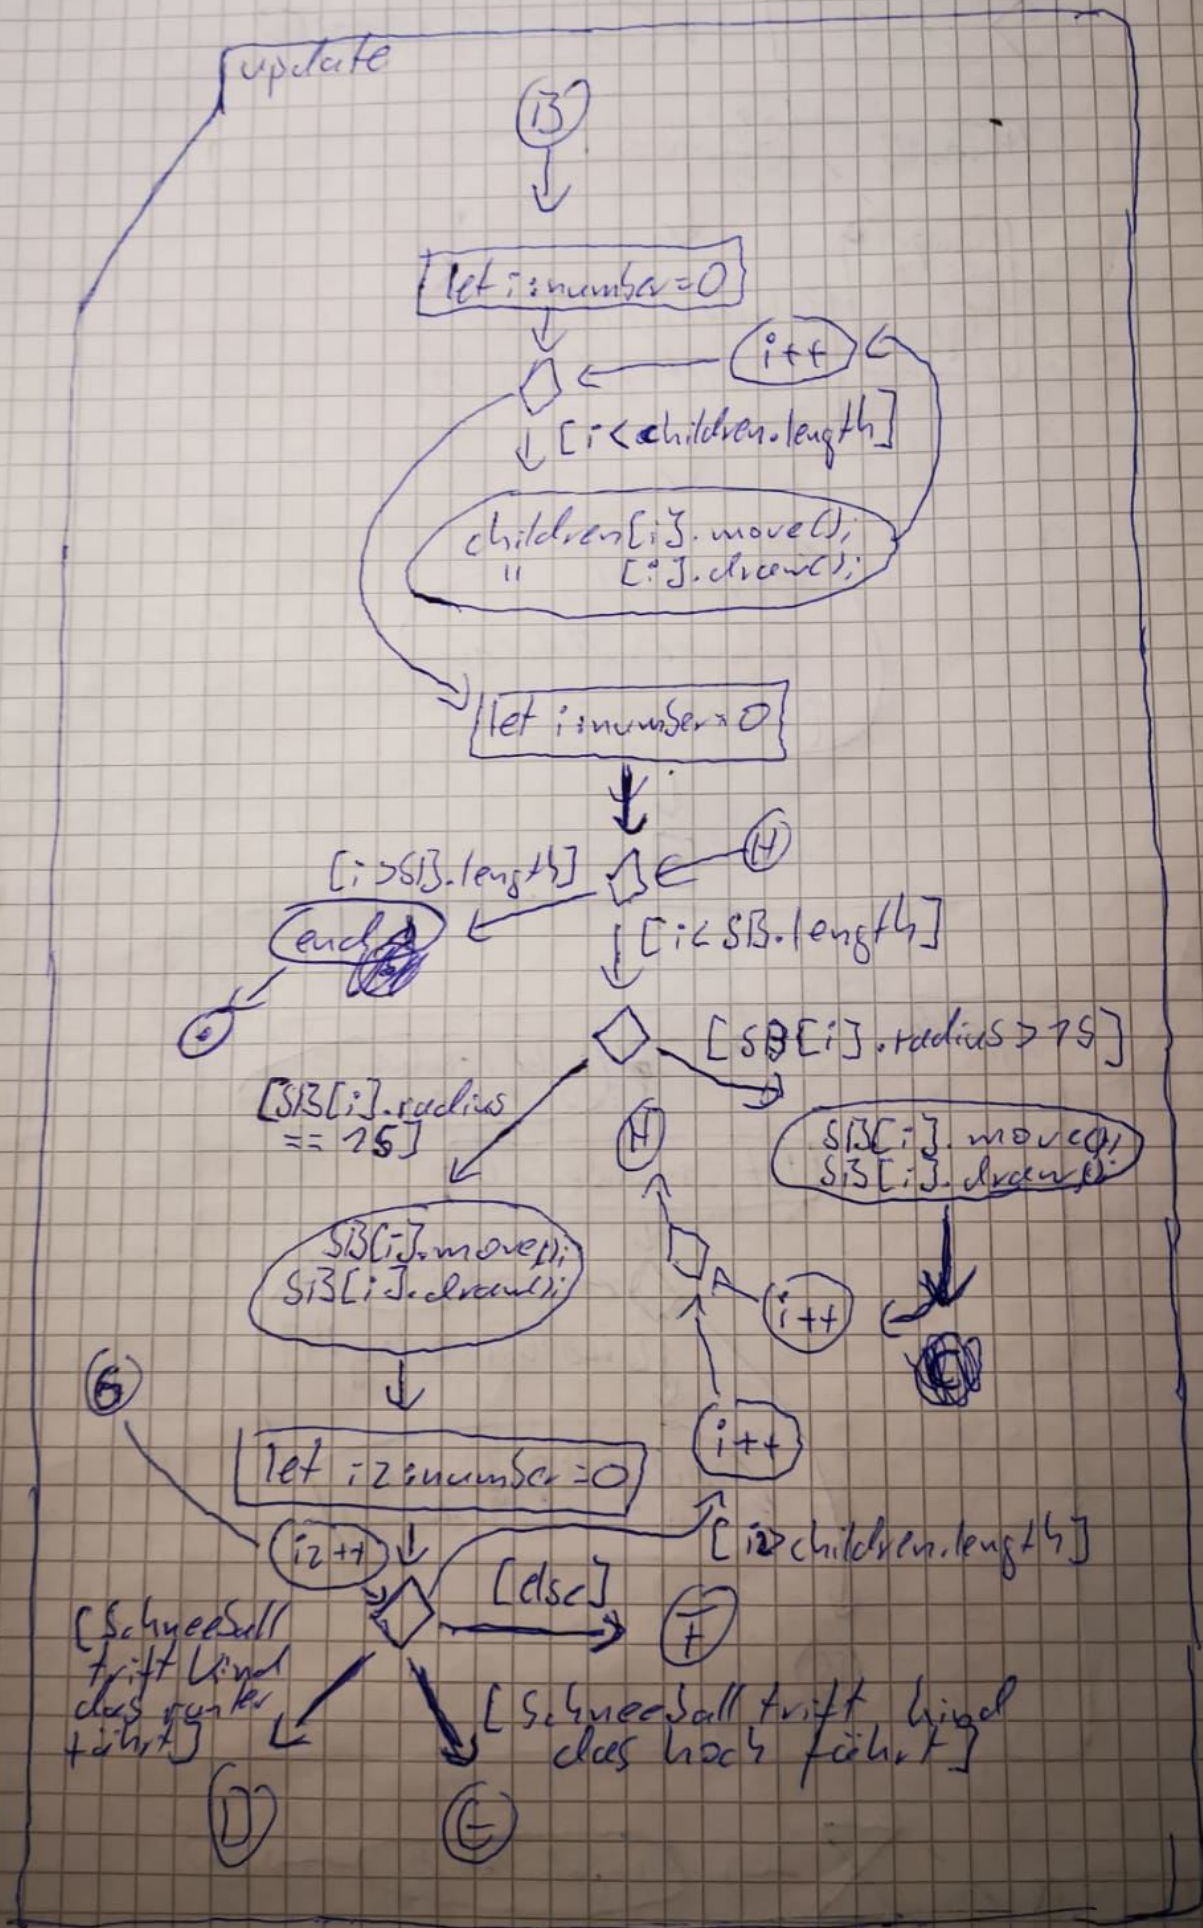 update
B
let i:number=0
i++
[i<children.length]
children[i].move();
" [i].draw();
let i:number=0
H
[i>SB.length]
end
[i<SB.length]
[SB[i].radius>15]
[SB[i].radius
== 15]
H
SB[i].move();
SB[i].draw();
SB[i].move();
SB[i].draw();
i++
G
i++
let i2:number=0
i2++
[i2>children.length]
[else]
F
[Schneeball
trift kind
das runter
fährt]
[Schneeball trift kind
das hoch fährt]
D
E